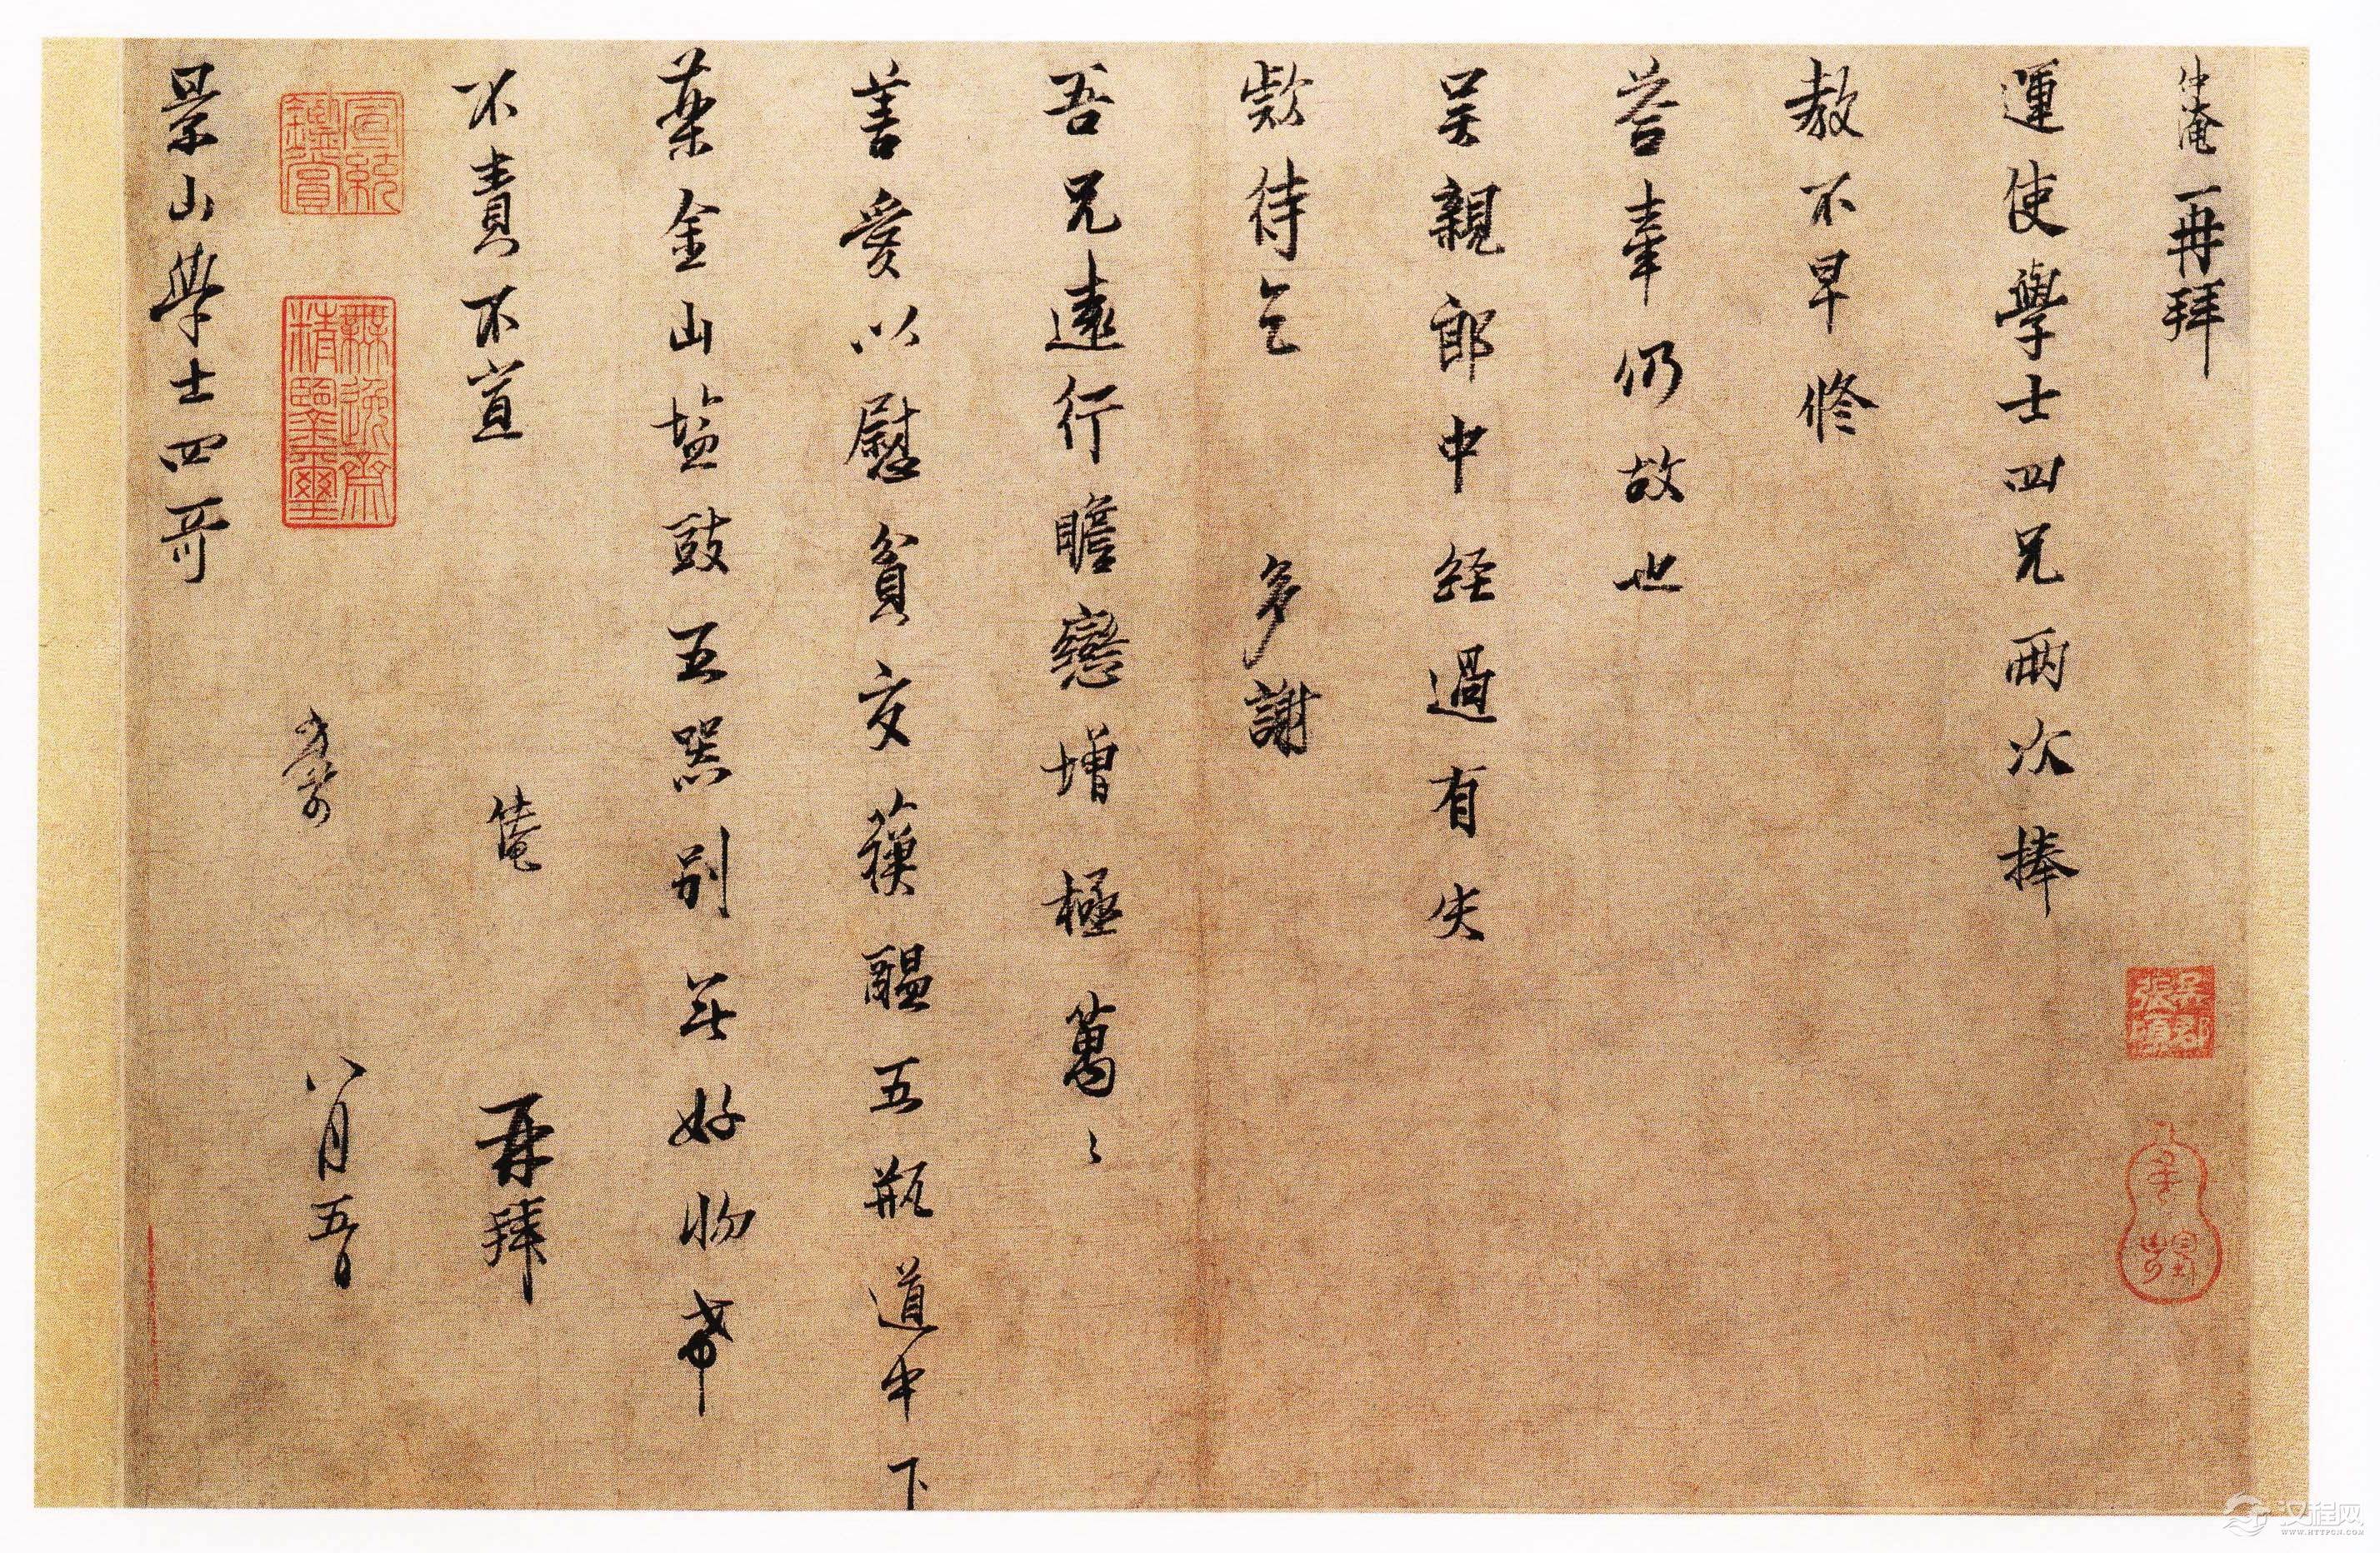 仲淹再拜
運使學士四兄兩次捧
教不早修
荅牽仍故也
吴親郎中經過有失
欵待乞 多謝
吾兄遠行瞻戀增極萬〻
善愛以慰貧交蘇醖五瓶道中下
藥金山塩豉五器別無好物希
不責不宣 仲淹 再拜
座前 八月五日
景山學士四哥
吳郡張塤
宣統鑑賞
無逸齋精鑑璽
汉程网
WWW.HTTPCN.COM